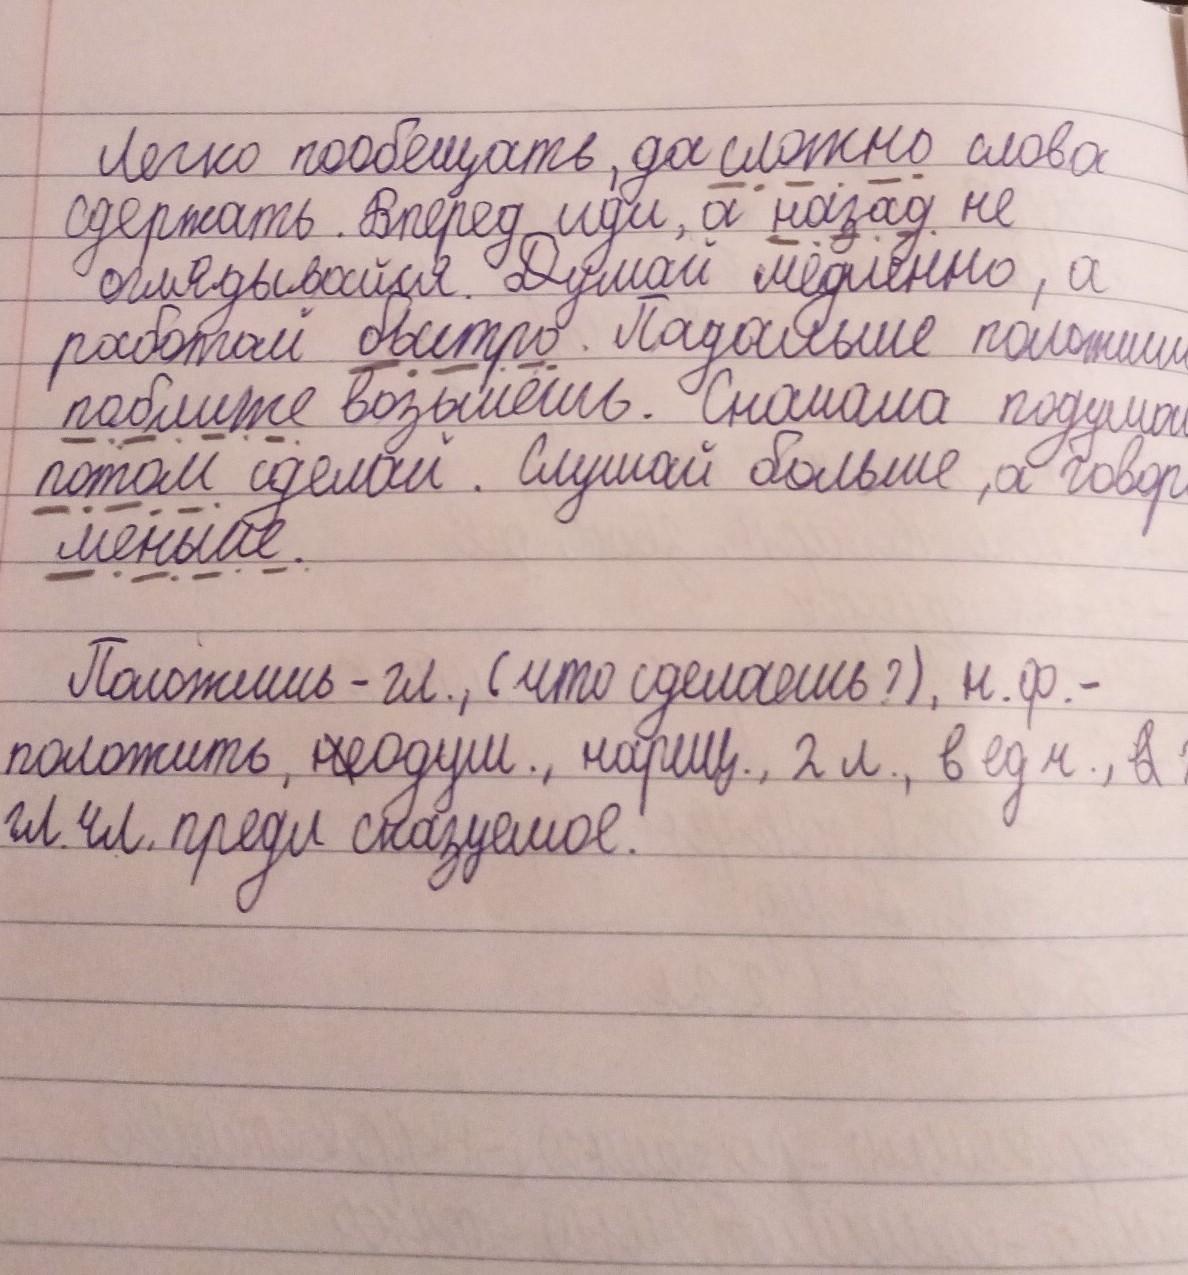 Легко пообещать, да сложно слова
сдержать. Вперед иди, а назад не
оглядывайся. Думай медленно, а
работай быстро. Падальше положиш
поближе возьмёшь. Сначала подумай
потом сделай. Слушай больше, а говор
меньше.
Положишь - гл., (что сделаешь?), н. ф. -
положить, неодуш., нариц., 2 л., в ед ч., в
гл. чл. предл сказуемое.